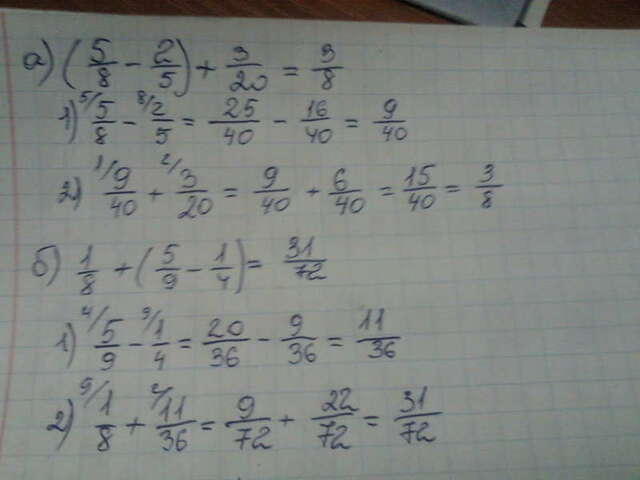 а) (5/8 - 2/5) + 3/20 = 3/8
1) ⁵⁄5/8 - ⁸⁄2/5 = 25/40 - 16/40 = 9/40
2) ¹⁄9/40 + ²⁄3/20 = 9/40 + 6/40 = 15/40 = 3/8
б) 1/8 + (5/9 - 1/4) = 31/72
1) ⁴⁄5/9 - ⁹⁄1/4 = 20/36 - 9/36 = 11/36
2) ⁹⁄1/8 + ²⁄11/36 = 9/72 + 22/72 = 31/72